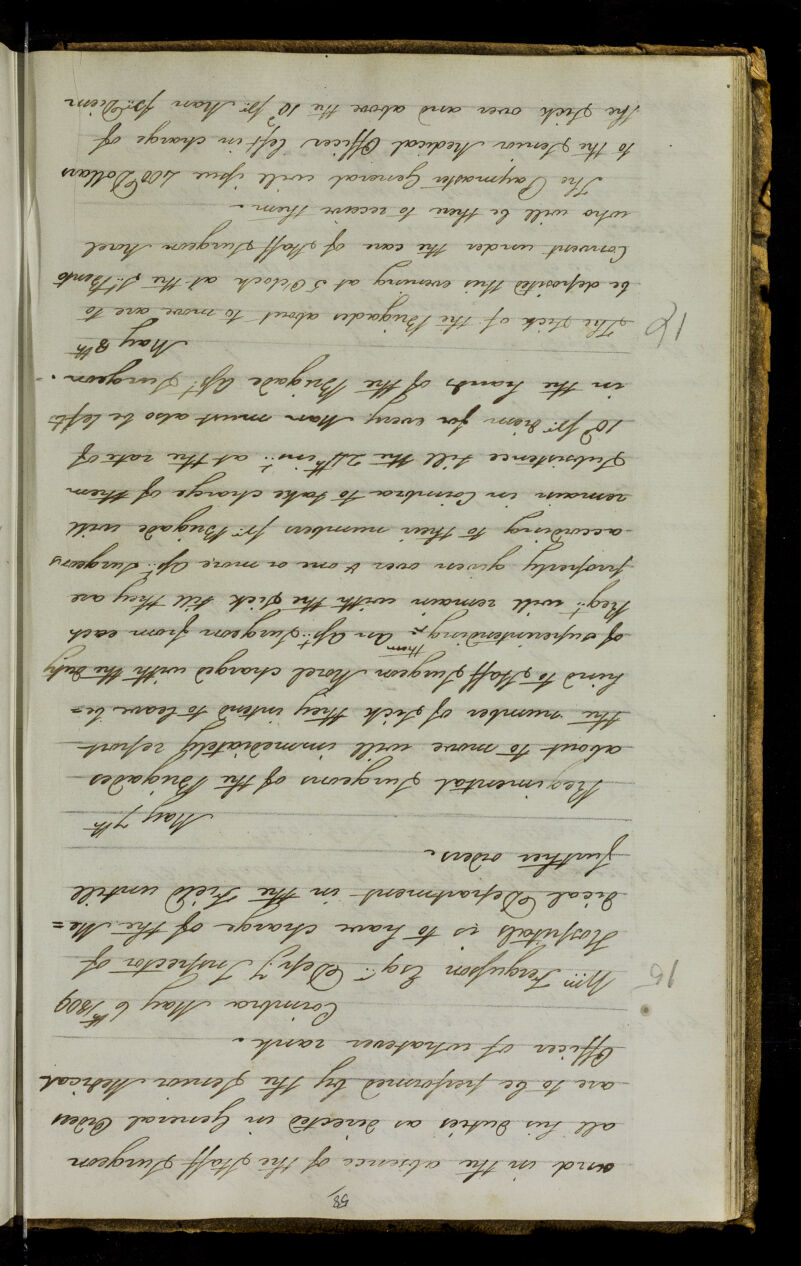 58
and in the absence of the Staff Surgeon
all his duties as directed in General Orders
are to be performed by the Senior Medical
Officer of whatever rank.
Coimbra May 6th 1809
16
Wm Fergusson Esqr Depy Inspector of
Hospitals is to have charge of the Me=
dical Department in the Field untill
further orders.
May 7th
Regimental Surgeons of the Brigades
about to move will immediately report
the number of sick they intend to leave be=
hind to Staff Surgeon Morel charged with the duty
of superintending them. An Asst Surgeon from each
Regt will remain with the sick till they are
properly given over & one or more Asst Surgeons
according to their numbers pr Brigade will
remain in Coimbra to take charge of them
Subsistence till the 24th inst at the rate of
10d pr diem for every Man must also be left
in the hands of the Brigade Asst Surgeon.
May 8th
The sick of the Brigades about to move are to
be deposited this evening at 5 OClock at the St Bento
Convent under the care of Staff Surgeon Morel
who will be there to receive them.
The Paymaster General will issue 400 Dollars
to the Senior Medical Officer left in charge of
the sick over and above the 10d pr Man pr Diem